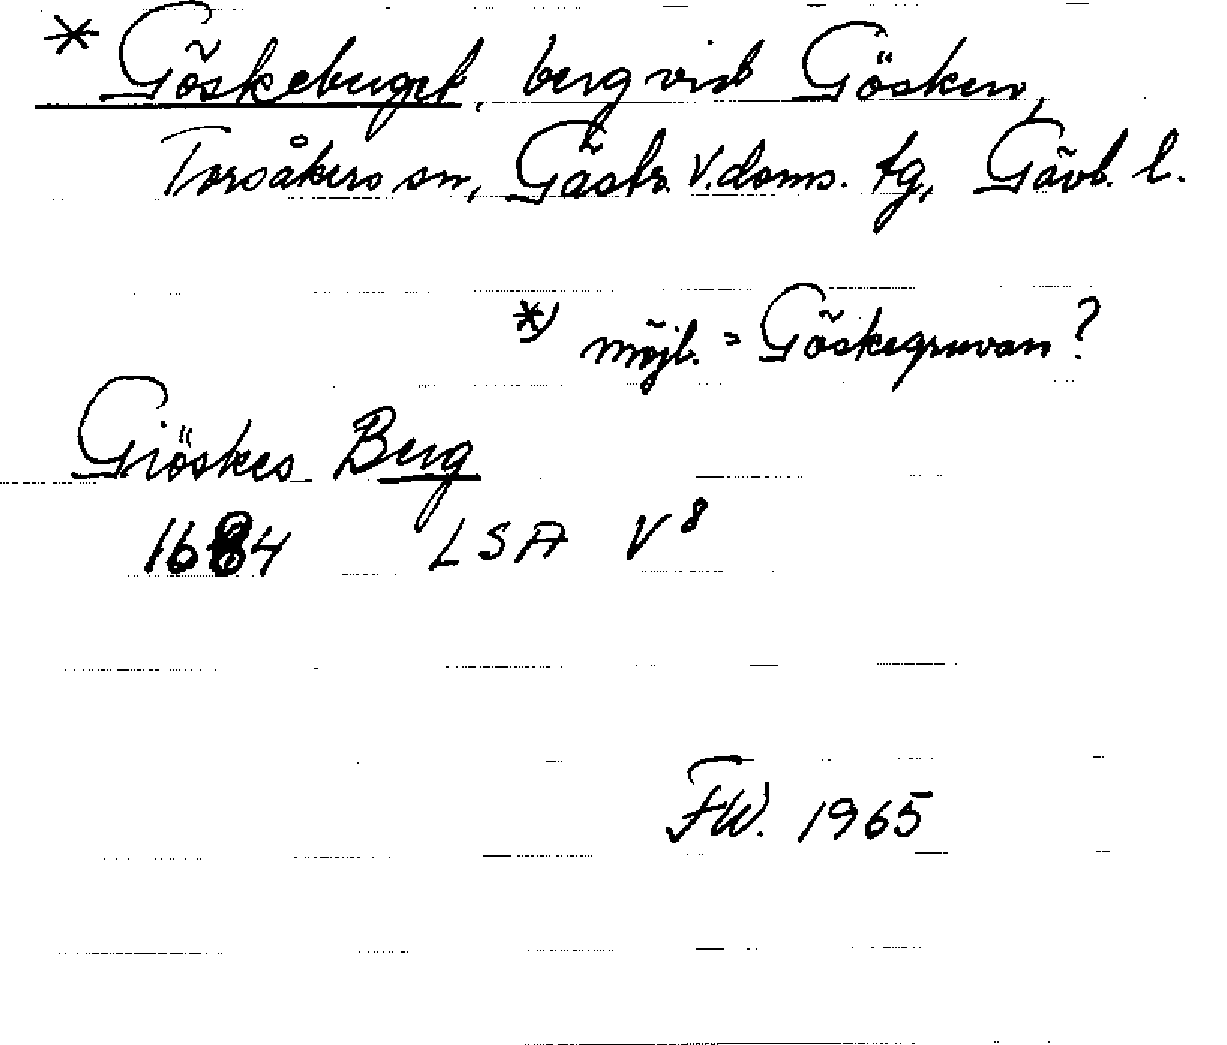 * Göskeberget, berg vid Gösken,
Torsåkers sn, Gästr. V. doms. tg, Gävl. l.
*) möjl. = Göskegruvan?
Giöskes Berg
1684 LSA V 8
FW. 1965